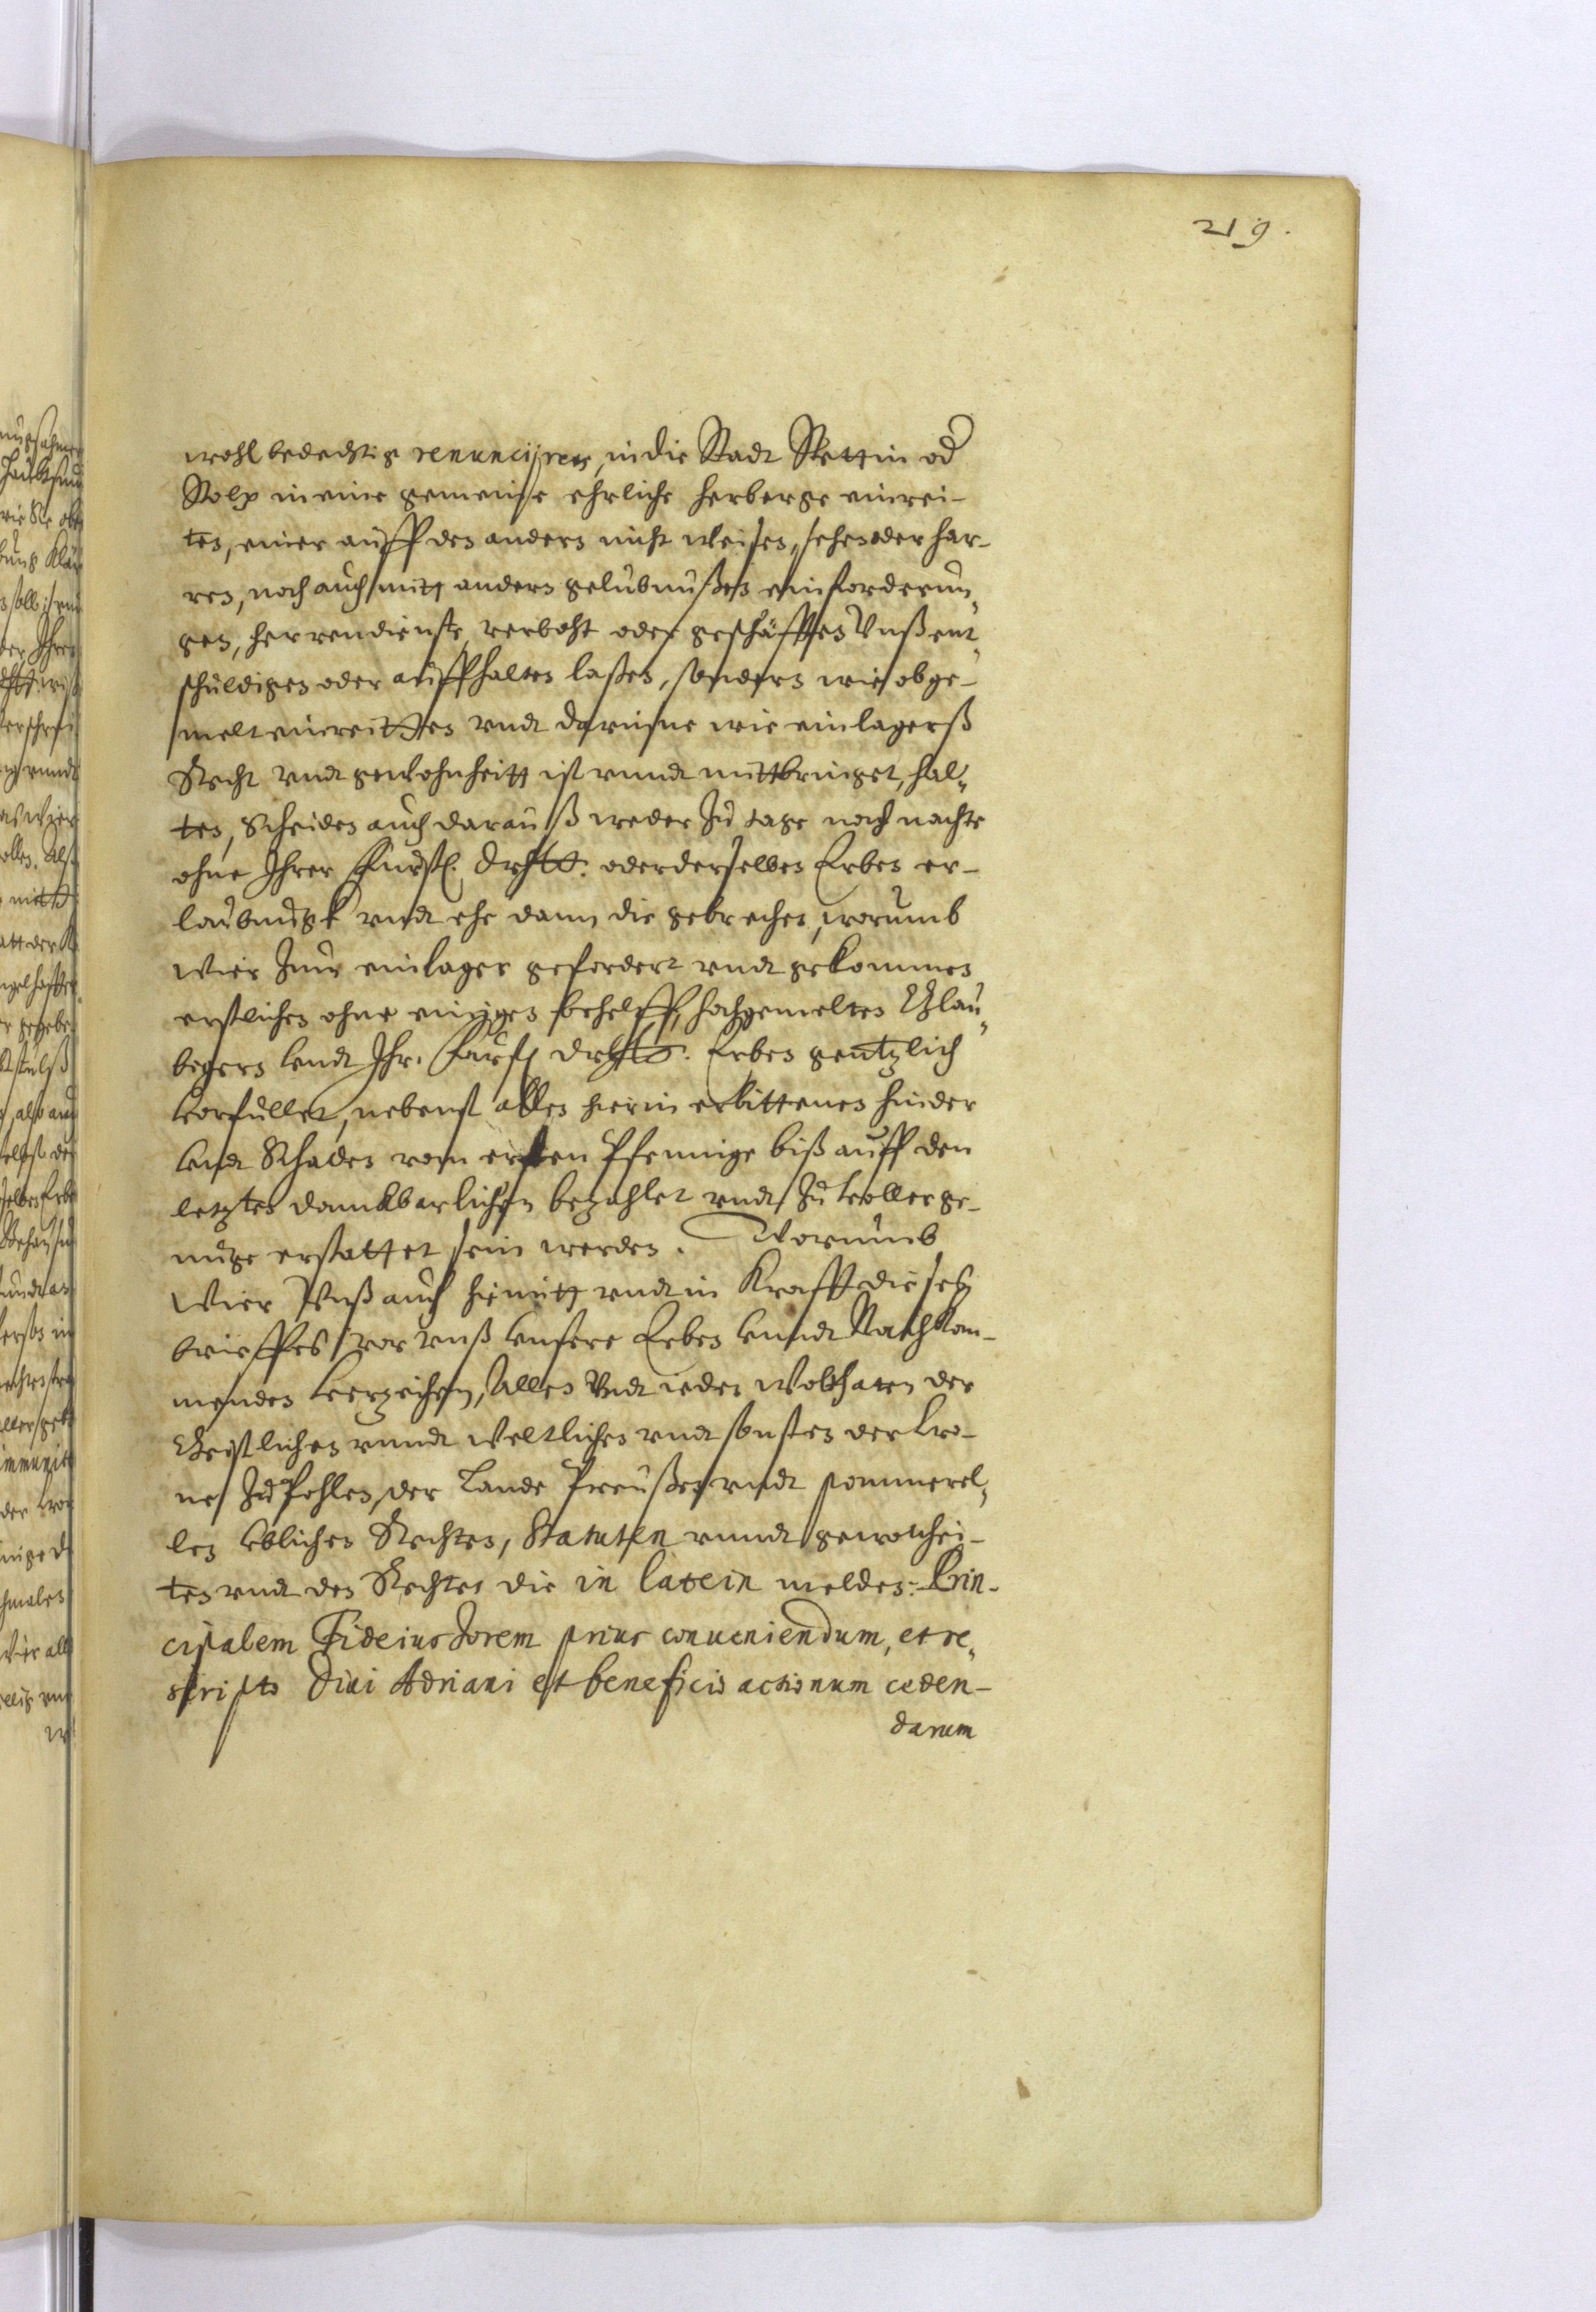 219.
wohlbedechtig renunciiren, in die Stadt Stettin od
Stolp in eine gemeine ehrliche herberge einrei-
ten, einer auff den andern nicht weisen, sehen oder har-
ren, noch auch mitt andern gelubnußen einforderun-
gen, herrendienste verboht oder geschäfften Vnß ent-
schuldigen oder auffhalten laßen, sondern wie obge-
melt einreitten vndt darinne wie einlagerß
Recht vndt gewohnheitt ist vnndt mittbringet, hal-
ten, Scheiden auch darauß weder Zu tage noch nachte
ohne Ihrer Furstl. Drhltt. oder derselben Erben er-
laubnuß vndt ehe dann die gebrechen, worumb
Wier Zum einlager gefordert vndt gekommen
erstlichen ohne einigen behelff, hochgemelten Glau-
begern vndt Ihr. Furstl Drhltt. Erben gentzlich
vorfullet, nebenst allen hierin erlittenen hinder
vndt Schaden vom ersten Pfennige biß auff den
letzten danckbarlichen bezahlet vndt Zu voller ge-
nuge erstattet sein werden. Worumb
Wier Vnß auch hiemitt vndt in Krafft dieses
brieffes vor vnß vnsere Erben vnndt Nachkom-
menden verzeihen, Allen Vndt ieden Wolthaten der
Geistlichen vnndt Weltlichen vndt sonsten der Cro-
ne Zu Pohlen, der Lande Preußen vndt pommerel-
len vblichen Rechten, Statuten vnndt gewohnhei-
ten vndt des Rechten die in latein melden: Prin-
cipalem Fideiussorem prius conueniendum, et re-
scripto Diui Adriani et beneficio actionum ceden-
darum